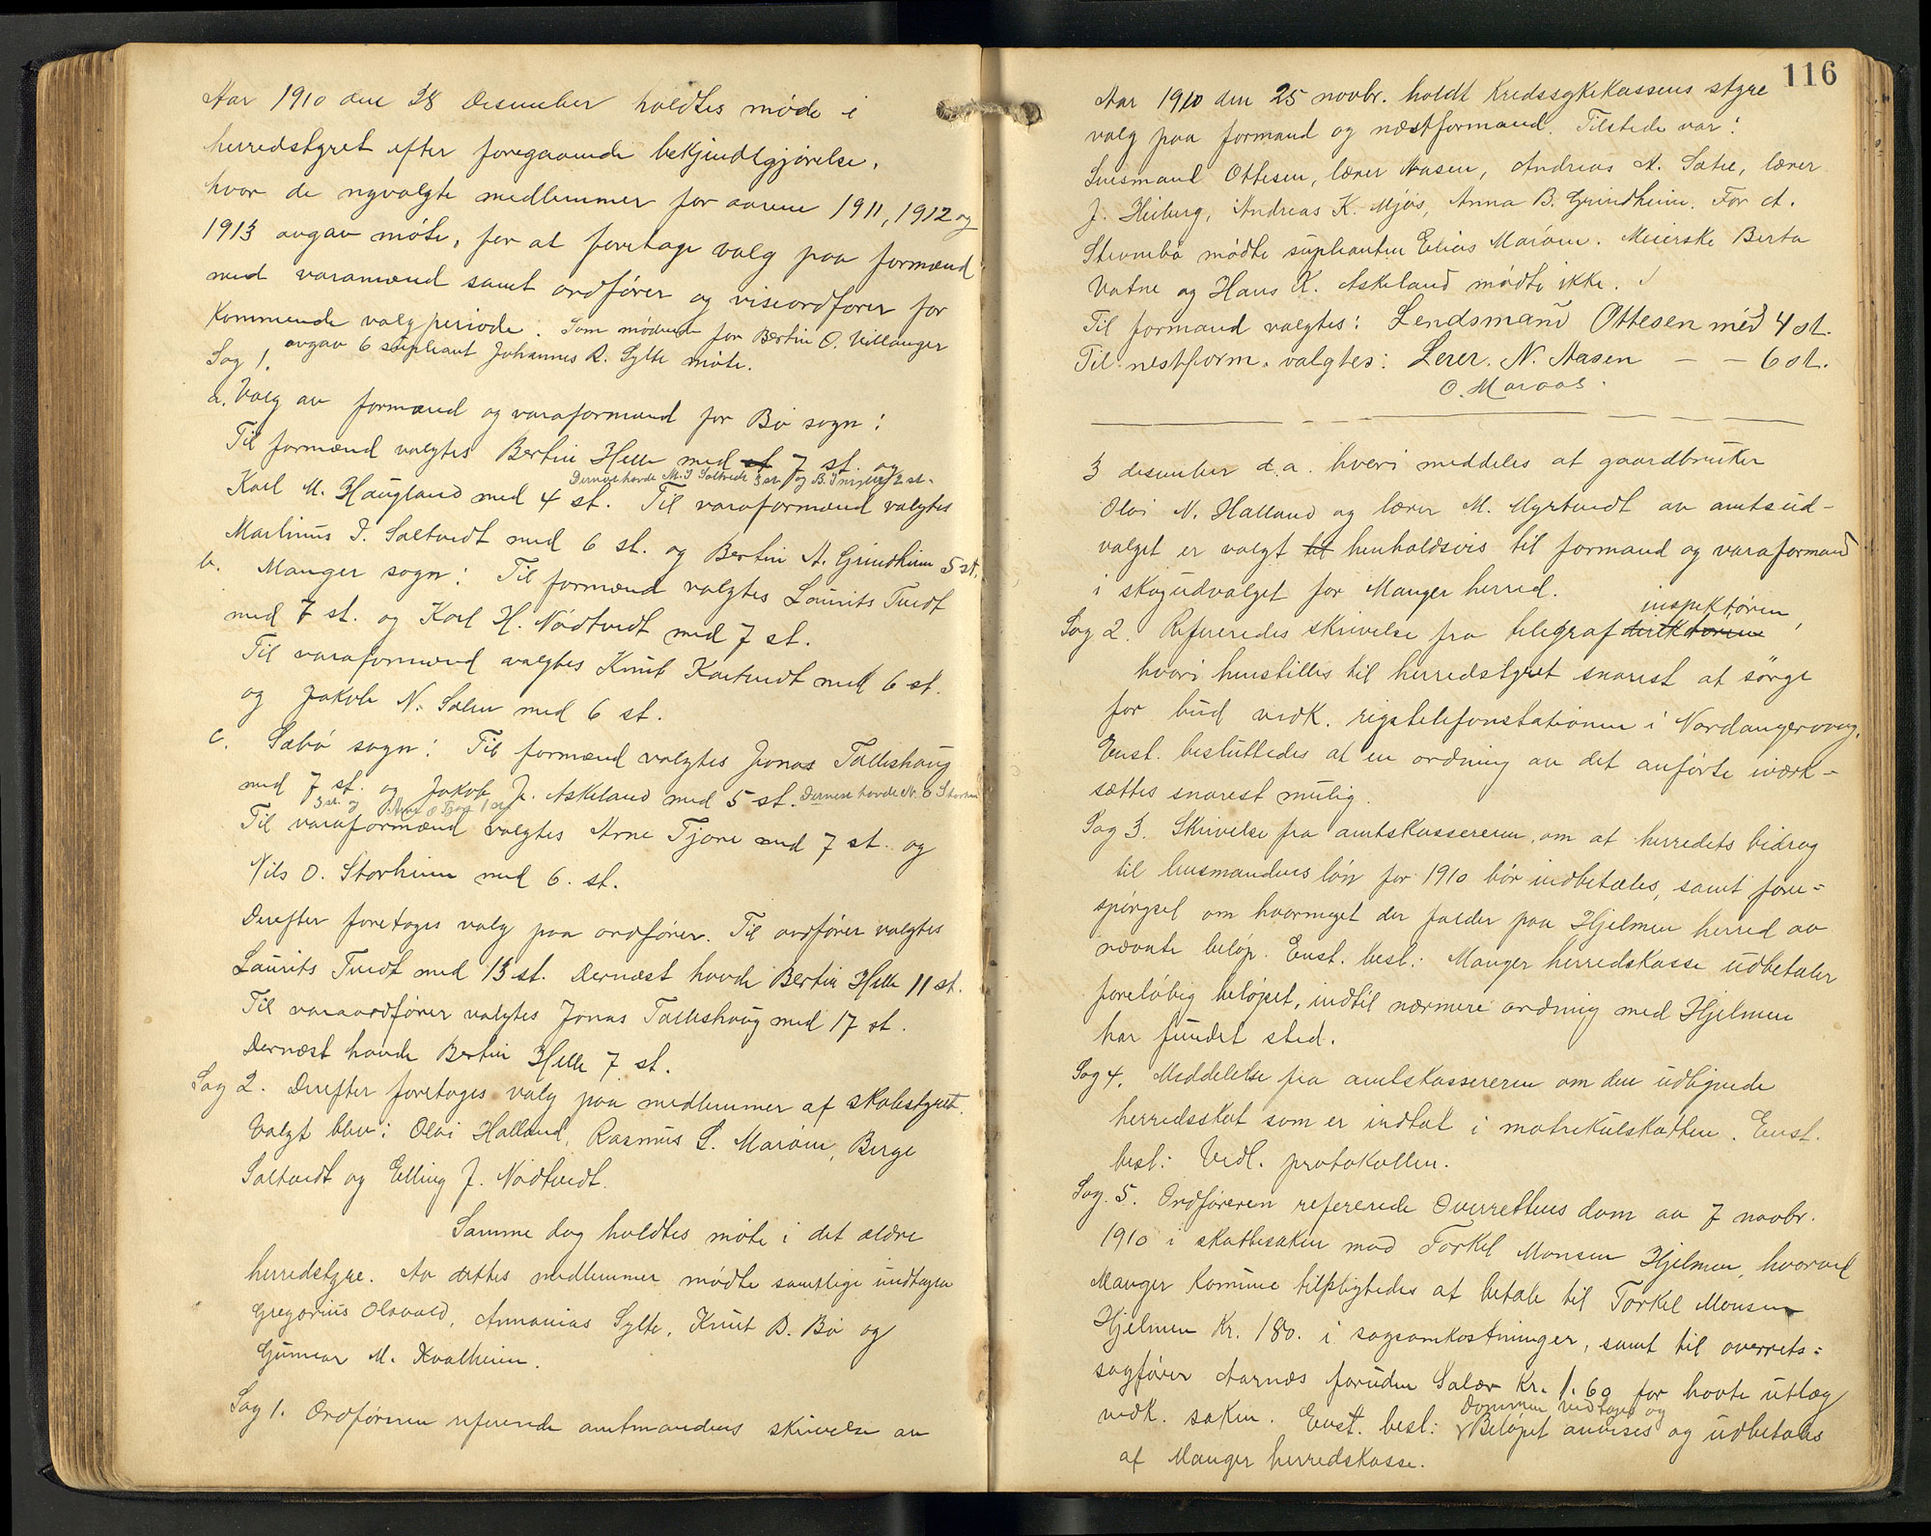 Aar 1910 den 28 Desember holdtes møde i
herredstyret efter foregaaende bekjendtgjørelse,
hvor de nyvalgte medlemmer for aarene 1911, 1912 og
1913 avgav møte, for at foretage valg paa formænd
med varamænd samt ordfører og viseordfører for
kommende valgperiode. Som mødende for Bertin O. Villanger
avgav 6 supliant Johannes R. Sylte møte.
Sag 1.
a. Valg av formænd og varaformænd for Bø sogn:
Til formænd valgtes Bertin Helle med st 7 st. og
Dernæst havde M. J. Saltvedt 3 st. og B. 2 st.
Karl M. Haugland med 4 st. Til varaformænd valgtes
Martinus J. Saltvedt med 6 st. og Bertin A. Grindheim 5 st.
b. Manger sogn: Til formænd valgtes Laurits Tvedt
med 7 st. og Karl H. Nødtvedt med 7 st.
Til varaformænd valgtes Knut Kartvedt med 6 st.
og Jakob N. Solen med 6 st.
c. Sæbø sogn: Til formænd valgtes Jonas Talleshaug
med 7 st. og Jakob J. Askeland med 5 st. Dernæst havde N. O. Storheim
3 st. og Arne O Tjore 1 st.
Til varaformænd valgtes Arne Tjore med 7 st. og
Nils O. Storheim med 6. st.
Derefter foretoges valg paa ordfører. Til ordfører valgtes
Laurits Tvedt med 13 st. Dernæst havde Bertin Helle 11 st.
Til varaordfører valgtes Jonas Talleshaug med 17 st.
Dernæst havde Bertin Helle 7 st.
Sag 2. Derefter foretoges valg paa medlemmer af skolestyret.
Valgt blev: Olai Halland, Rasmus L. Marøen, Berge
Saltvedt og Elling J. Nødtvedt.
Samme dag holdtes møte i det ældre
herredstyre. Av dettes medlemmer mødte samtlige undtagen
Gregorius Olsvold, Annanias Sylte, Knut B. Bø og
Gunnar M. Kvalheim.
Sag 1. Ordføreren refererede amtmandens skrivelse av
116
Aar 1910 den 25 novbr. holdt Kredssykekassens styre
valg paa formand og næstformand. Tilstede var:
Lensmand Ottesen, lærer Aasen, Andreas A. Sætre, lærer
J. Heiberg, Andreas K. Mjøs, Anna B. Grindheim. For A.
Strømbø mødte suplianten Elias Marøen. Meierske Berta
Vatne og Hans K. Askeland mødte ikke.
Til formand valgtes: Lendsmand Ottesen med 4 st.
Til nestform. valgtes: Lerer. N. Aasen — — 6 st.
O. Maraas.
3 desember d.a. hvori meddeles at gaardbruker
Olai N. Halland og lærer M. Myrtvedt av amtsud-
valget er valgt til henholdsvis til formand og varaformand
i skogudvalget for Manger herred.
inspektøren,
Sag 2. Refereredes skrivelse fra telegrafdirektøren
hvori henstilles til herredstyret snarest at sørge
for bud vedk. rigstelefonstationen i Nordangervaag.
Enst. besluttedes at en ordning av det anførte iværk-
sættes snarest mulig.
Sag 3. Skrivelse fra amtskassereren, om at herredets bidrag
til lensmandens løn for 1910 bør indbetales, samt fore-
spørgsel om hvormeget der falder paa Hjelmen herred av
nævnte beløp. Enst. besl.: Manger herredskasse udbetaler
foreløbig beløpet, indtil nærmere ordning med Hjelmen
har fundet sted.
Sag 4. Meddelelse fra amtskassereren om den udlignede
herredsskat som er indtat i matrikulskatten. Enst.
besl: Vedl. protokollen.
Sag. 5. Ordføreren refererede Overrettens dom av 7 novbr.
1910 i skattesaken mod Torkel Monsen Hjelmen, hvorved
Manger komune tilpligtedes at betale til Torkel Monsen
Hjelmen kr. 180. i sagsomkostninger, samt til overrets-
sagfører Aarnæs foruden Salær kr. 1.60 for havte utlæg
Dommen vedtages og
vedk. saken. Enst. besl: Beløpet anvises og udbetales
af Manger herredskasse.